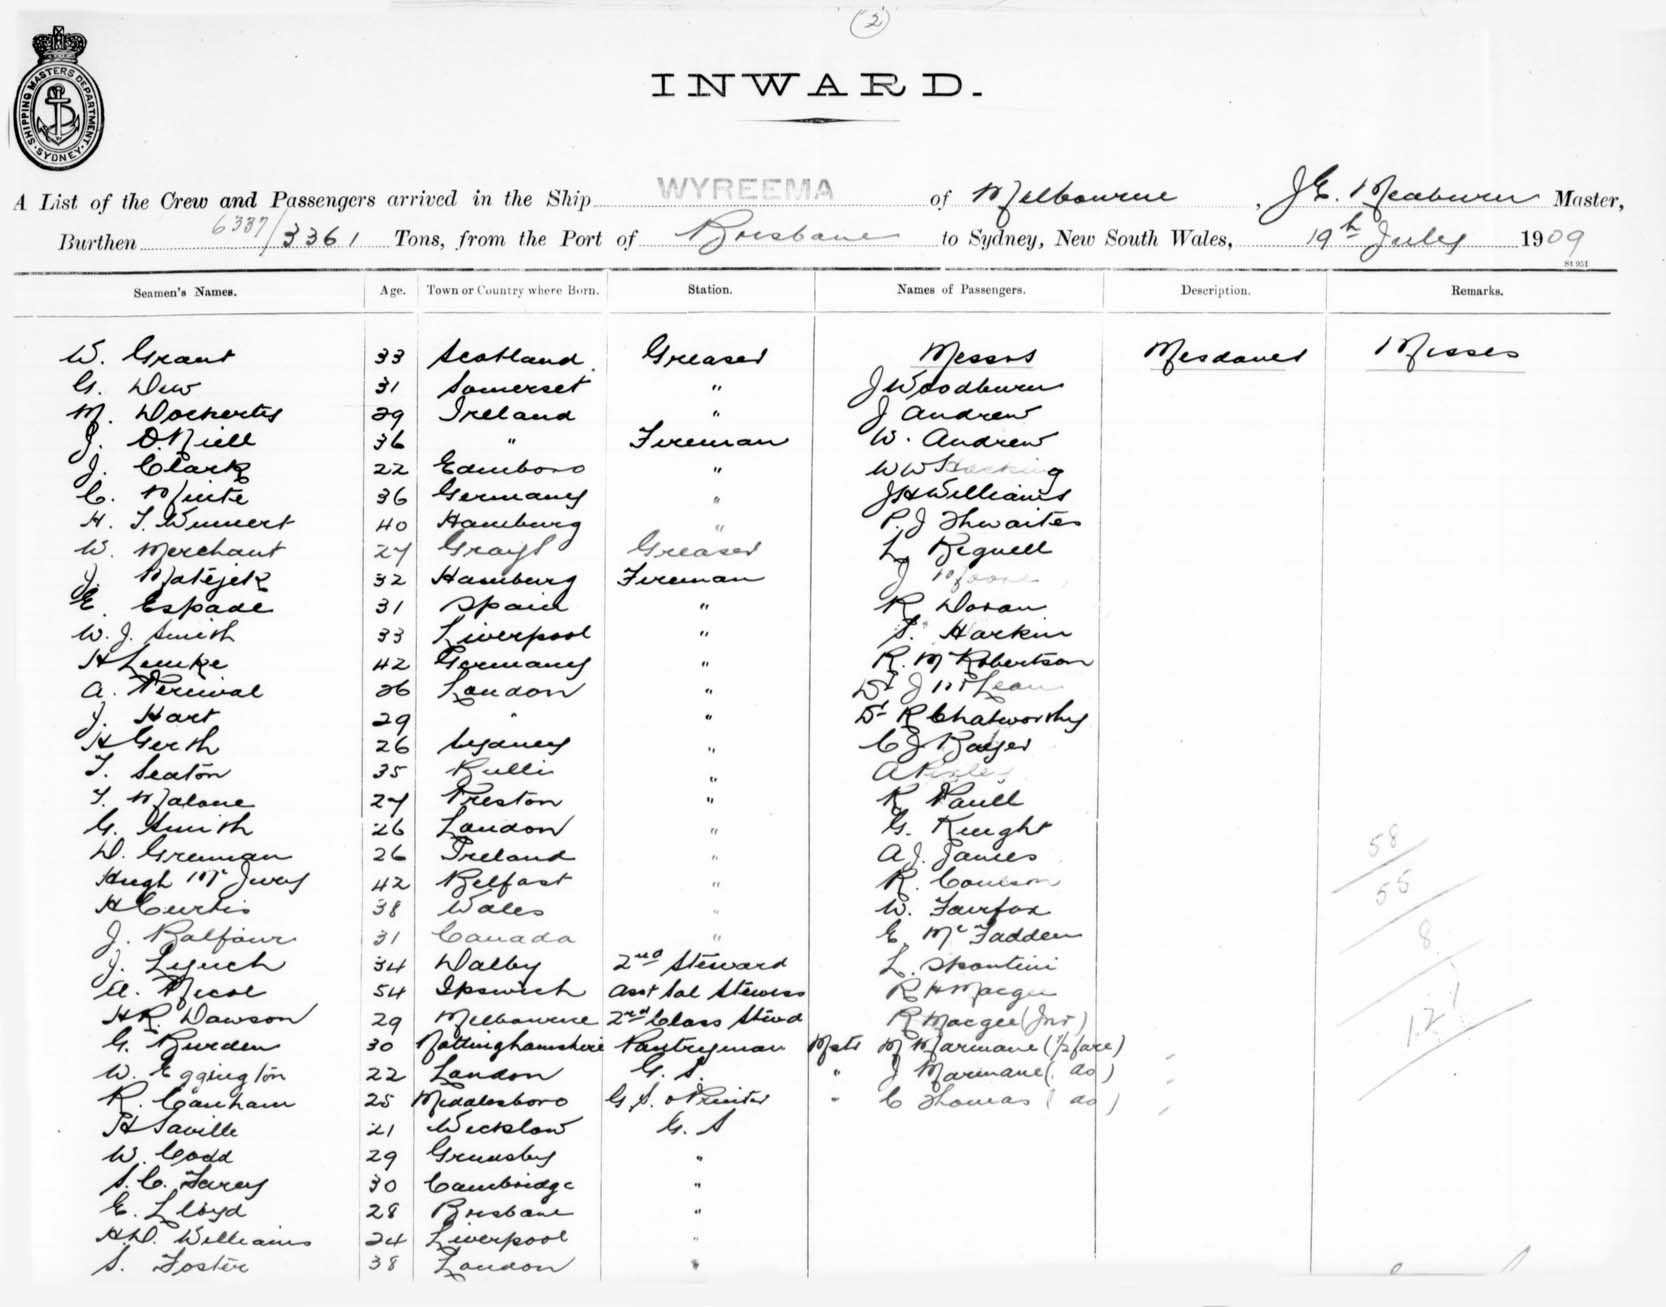 (2)
SHIPPING MASTERS DEPARTMENT SYDNEY
INWARD.
A List of the Crew and Passengers arrived in the Ship WYREEMA of Melbourne, J E. Meaburn Master,
Burthen 6337/3361 Tons, from the Port of Brisbane to Sydney, New South Wales, 19th July 1909
St 951
Seamen's Names. Age. Town or Country where Born. Station. Names of Passengers. Description. Remarks.
W. Grant 33 Scotland Greaser Messrs Mesdames Misses
G. Dew 31 Somerset " J Woodburn
M. Dockerty 29 Ireland " J Andrew
J. O'Niell 36 " Fireman W. Andrew
J. Clark 22 Edinboro " W W Hocking
C. Minte 36 Germany " J H Williams
H. T. Wunnert 40 Hamburg " P. J Thwaites
W. Merchant 27 Grays Greaser L Regnell
J. Matejek 32 Hamburg Fireman J Moore
E. Espade 31 Spain " R Doran
W. J. Smith 33 Liverpool " S. Harkin
H Lemke 42 Germany " R. M Robertson
A. Percival 36 London " Dr J McLean
J. Hart 29 " " Dr R Chatworthy
H Gerth 26 Sydney " C J Rayer
T. Seaton 35 Bulli " A
T. Malone 27 Preston " R Paull
G. Smith 26 London " G. Knight
D. Grennan 26 Ireland " A J. James
Hugh Mc Jury 42 Belfast " R. Coulson
H Curtis 38 Wales " W. Fairfax
J. Balfour 31 Canada " E Mc Fadden
J. Lynch 34 Dalby 2nd Steward L. Spontini
A. Nicol 54 Ipswich Asst Sal Stewess R H Macgee
H R. Dawson 29 Melbourne 2nd Class Stewd R Macgee (Jnr)
G. Burden 30 Nottinghamshire Pantryman Mstr M Marmane (1/2 fare)
W. Eggington 22 London G. S. " J Marmane (do)
R. Canham 25 Middlesboro G. S. & Printer " C Thomas (do)
H Saville 21 Wicklow G. S
W. Codd 29 Grimsby "
S. C. Farey 30 Cambridge "
E. Lloyd 28 Brisbane "
H. D. Williams 24 Liverpool "
S. Foster 38 London "
58
55
8
121